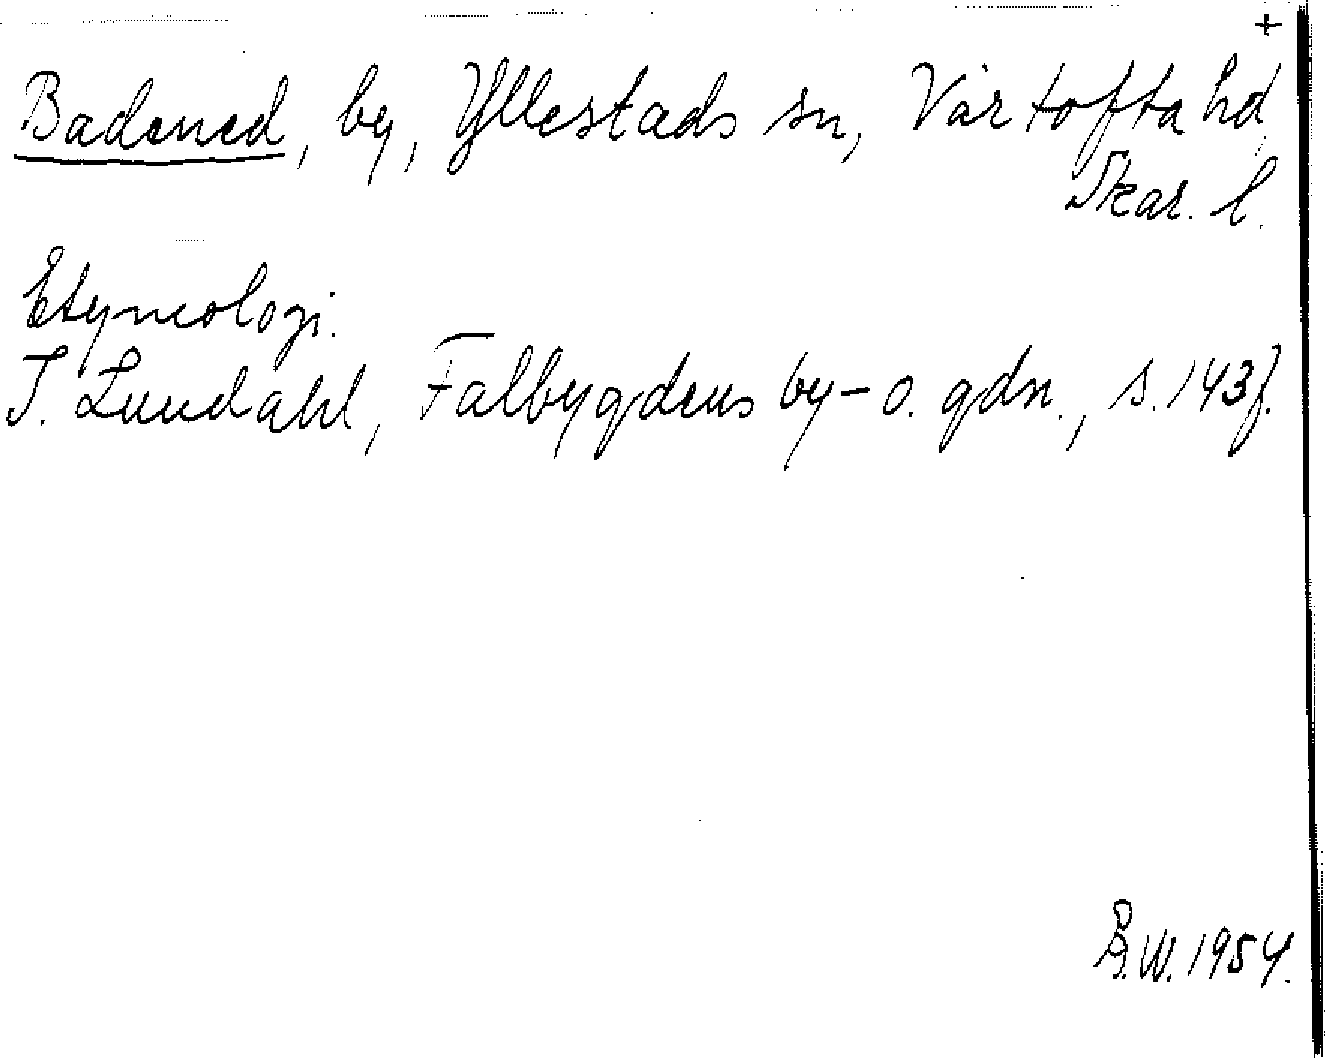 +
Badened, by, Yllestads sn, Vartofta hd,
Skar. l.
Etymologi.
I. Lundahl, Falbygdens by- o. gdn., s. 143f.
Å.W. 1954.